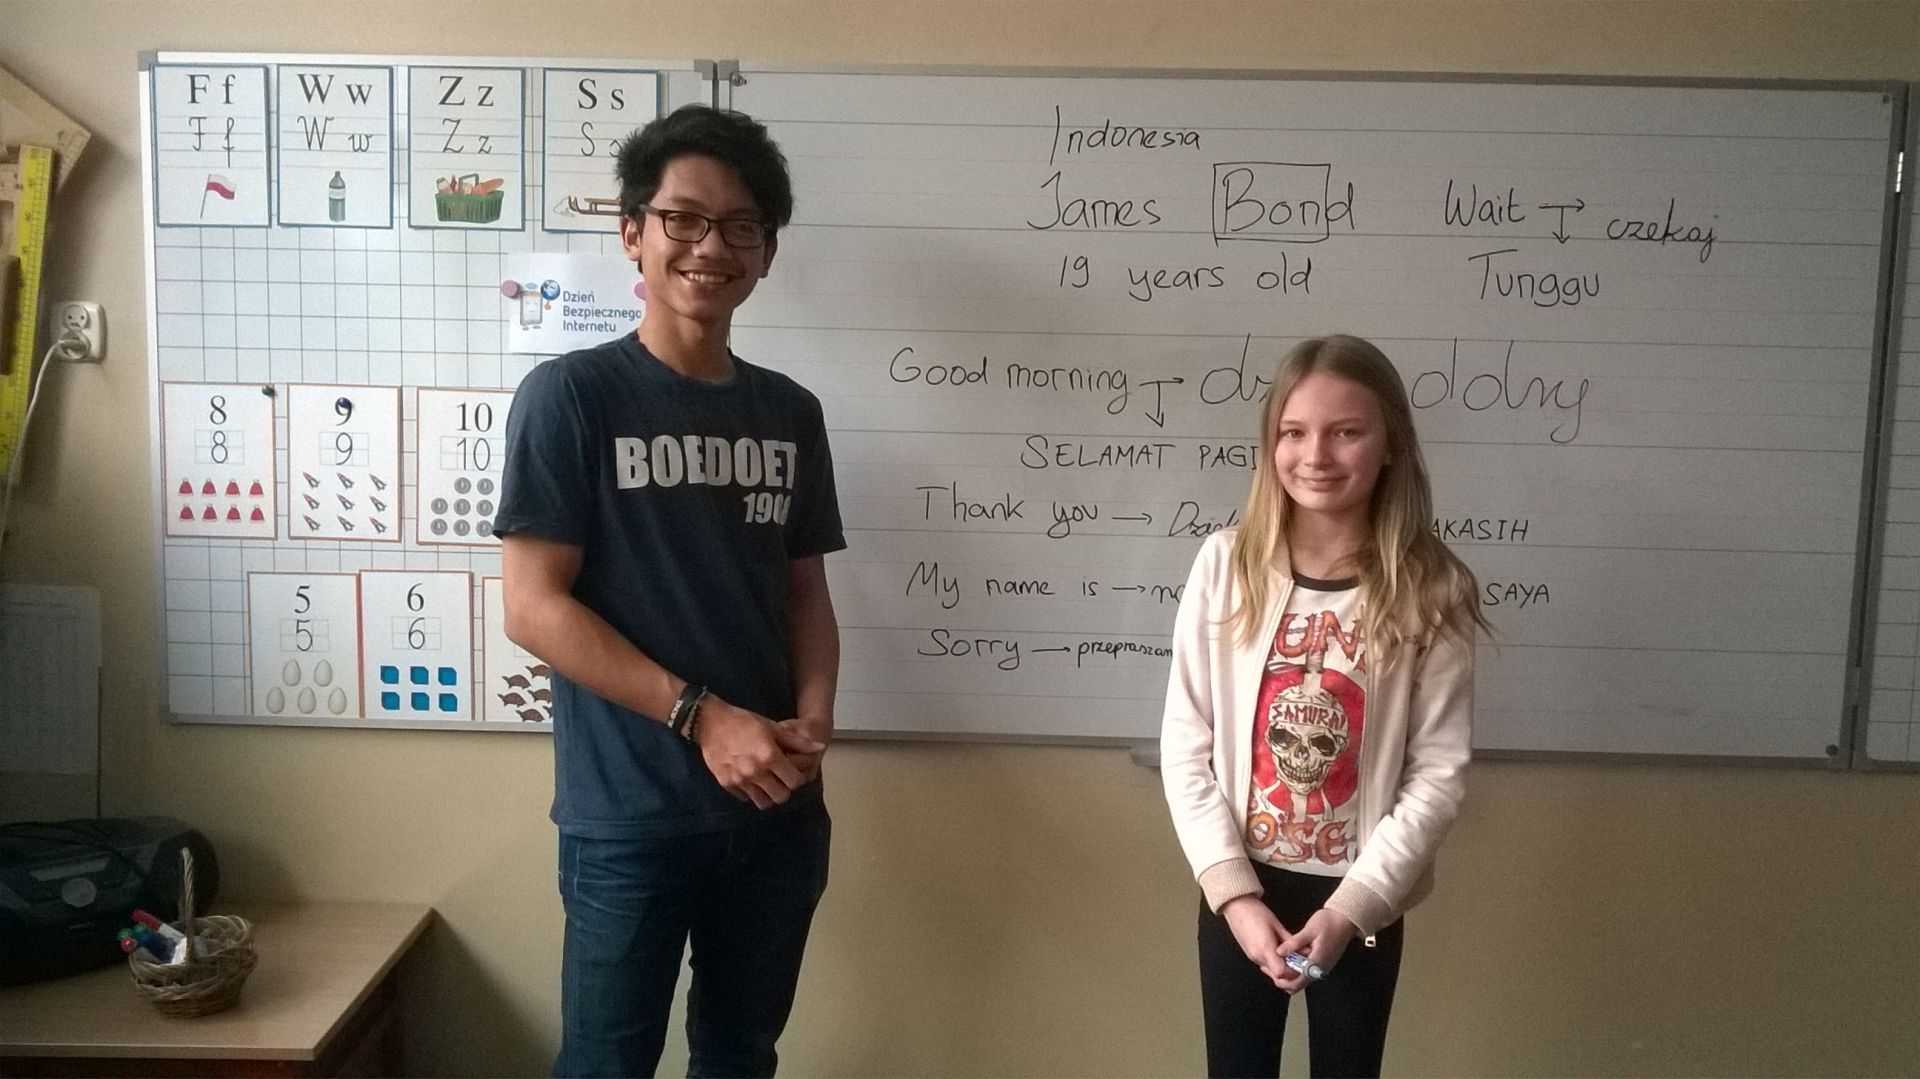 F f
F f
W w
W w
Z z
Z z
S s
S s
Dzień
Bezpiecznego
Internetu
8
8
9
9
10
10
5
5
6
6
BOEDOET
Indonesia
James Bond
19 years old
Wait → czekaj
Tunggu
Good morning → dobry
SELAMAT PAGI
Thank you →
My name is → SAYA
Sorry → przepraszam
SAMURAI